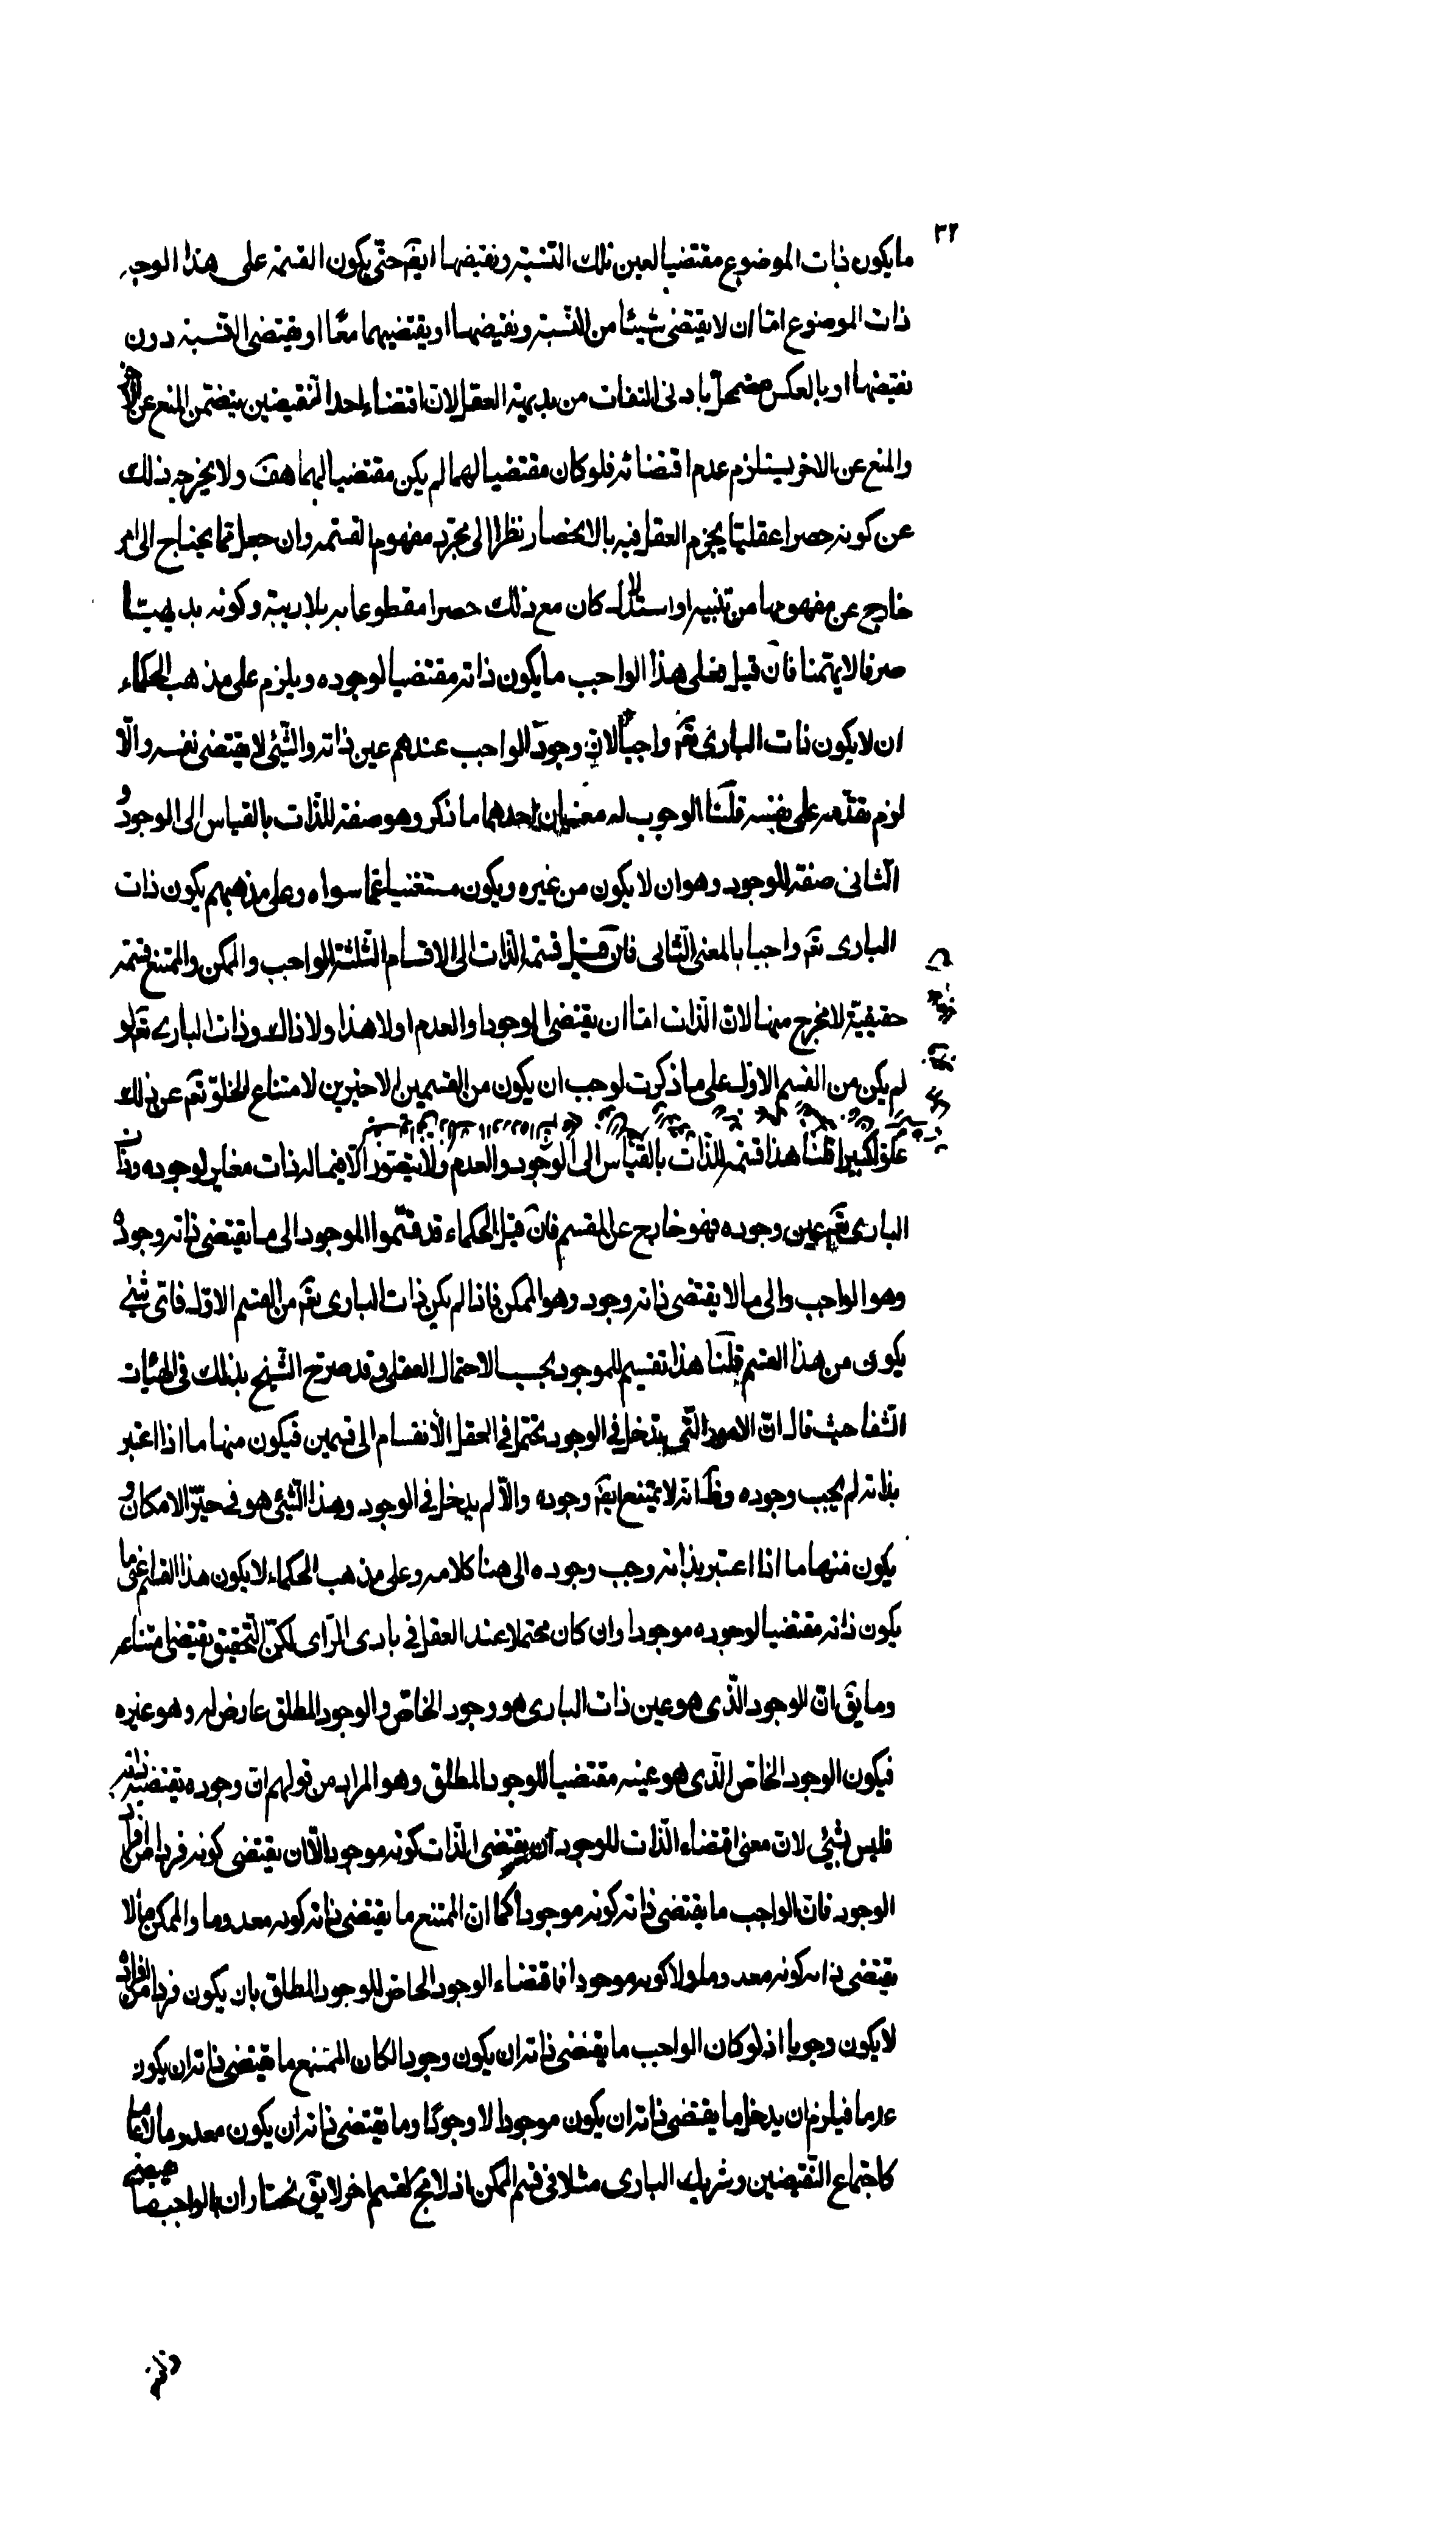 ٣٢
ما يكون ذات الموضوع مقتضيا لعين تلك النسبة ونقيضها ايضَ حتى يكون القسمة على هذا الوجه
ذات الموضوع امّا ان لا يقتضى شيئا من النسبة ونقيضها او يقتضيهما معًا او يقتضى النسبة دون
نقيضها او بالعكس مضمحل بادنى التفات من بديهة العقل لان اقتضاء احد النقيضين يتضمن المنع عن الاخر
والمنع عن الاخر يستلزم عدم اقتضائه فلو كان مقتضيا لهما لم يكن مقتضيا لهما هف ولا يخرجه ذلك
عن كونه حصرا عقليّا يجزم العقل فيه بالانحصار نظرا الى مجرّد مفهوم القسمة وان جعل مما يحتاج الى امر
خارج عن مفهومها من تنبيه او استدلال كان مع ذلك حصرا مقطوعا به بلا ريبة وكونه بديهيّا
صرفا لا يهمّنا فان قيل فعلى هذا الواجب ما يكون ذاته مقتضيا لوجوده ويلزم على مذهب الحكماء
ان لا يكون ذات البارى تعَ واجبا لان وجود الواجب عندهم عين ذاته والشّئ لا يقتضى نفسه والّا
لزم تقدّمه على نفسه قلنا الوجوب له معنيان احدهما ما ذكر وهو صفة للذّات بالقياس الى الوجود و
الثانى صفة للوجود وهو ان لا يكون من غيره ويكون مستغنيا عمّا سواه وعلى مذهبهم يكون ذات
البارى تعَ واجبا بالمعنى الثانى فان قيل قسمة الذات الى الاقسام الثلثة الواجب والممكن والممتنع قسمة
حقيقيّة لا مخرج منها لان الذّات امّا ان يقتضى الوجود او العدم او لا هذا ولا ذاك وذات البارى تعَ لو
لم يكن من القسم الاول على ما ذكرت لوجب ان يكون من القسمين الاخيرين لامتناع الخلوّ تعَ عن ذلك
علوّا كبيرا قلنا هذا قسمة للذّات بالقياس الى الوجود والعدم ولا يتصوّر الّا فيما له ذات مغاير لوجوده وذات
البارى تعَ عين وجوده فهو خارج عن المقسم فان قيل الحكماء قد قسّموا الموجود الى ما يقتضى ذاته وجوده
وهو الواجب والى ما لا يقتضى ذاته وجوده وهو الممكن فاذا لم يكن ذات البارى تعَ من القسم الاوّل فاىّ شئ
يكون من هذا القسم قلنا هذا تقسيم للموجود بحسب الاحتمال العقلى وقد صرّح الشّيخ بذلك فى الهيّات
الشّفا حيث قال انّ الامور الّتى يدخل فى الوجود يحتمل فى العقل الانقسام الى قسمين فيكون منها ما اذا اعتبر
بذاته لم يجب وجوده وظَ انّه لا يمتنع ايضَ وجوده والّا لم يدخل فى الوجود وهذا الشّئ هو فى حيّز الامكان و
يكون منها ما اذا اعتبر بذاته وجب وجوده الى هنا كلامه وعلى مذهب الحكماء لا يكون هذا القسم اعنى ما
يكون ذاته مقتضيا لوجوده موجودا وان كان محتملا عند العقل فى بادى الرّاى لكن التحقيق يقتضى امتناعه
وما يقَ ان الوجود الّذى هو عين ذات البارى هو وجود الخاصّ والوجود المطلق عارض له وهو غيره
فيكون الوجود الخاصّ الّذى هو عينه مقتضيا للوجود المطلق وهو المراد من قولهم ان وجوده يقتضيه ذاته
فليس بشئ لان معنى اقتضاء الذّات للوجود ان يقتضى الذّات كونه موجودا لا ان يقتضى كونه فردا من افراد
الوجود فان الواجب ما يقتضى ذاته كونه موجودا كما ان الممتنع ما يقتضى ذاته كونه معدوما والممكن ما لا
يقتضى ذاته كونه معدوما ولا كونه موجودا فاقتضاء الوجود الخاص للوجود المطلق بان يكون فردا من افراده
لا يكون وجوبا اذ لو كان الواجب ما يقتضى ذاته ان يكون وجودا لكان الممتنع ما يقتضى ذاته ان يكون
عدما فيلزم ان يدخل ما يقتضى ذاته ان يكون موجودا لا وجودا وما يقتضى ذاته ان يكون معدوما لا عدما
كاجتماع النّقيضين وشريك البارى مثلا فى قسم الممكن اذ لا مجَ لقسم اخر لا يقَ نختار ان الواجب ما يقتضى